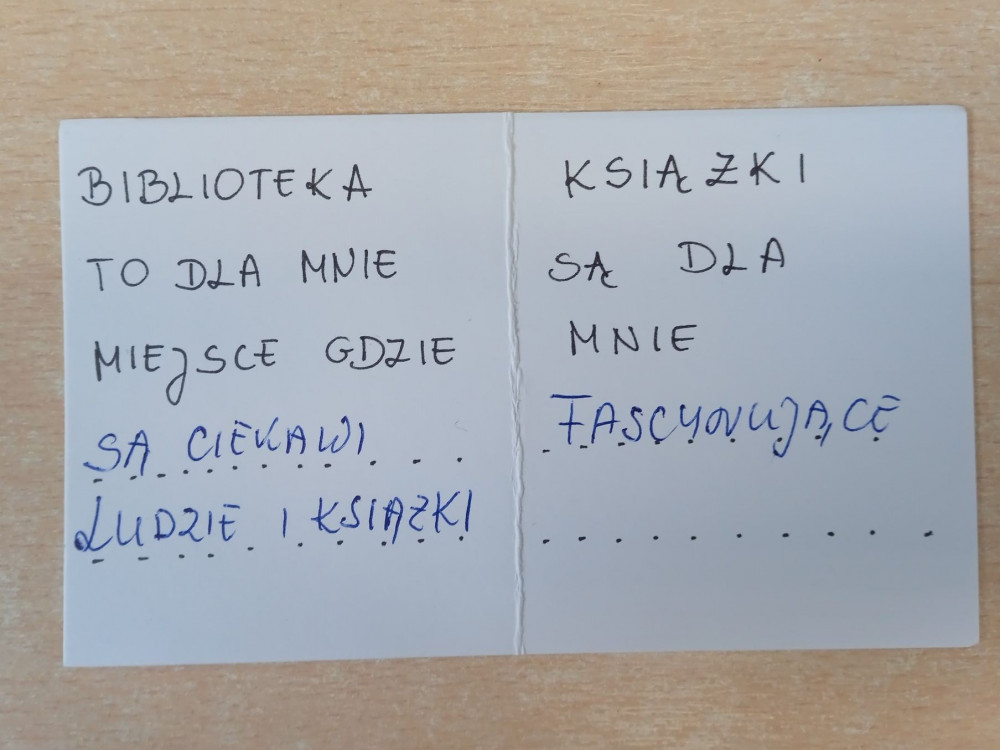 BIBLIOTEKA
TO DLA MNIE
MIEJSCE GDZIE
SĄ CIEKAWI . . .
LUDZIE I KSIĄŻKI
KSIĄŻKI
SĄ DLA
MNIE
FASCYNUJĄCE